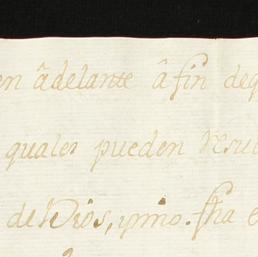 en âdelante â fin deq
quales pueden resu
de Dios, y mio. fha e